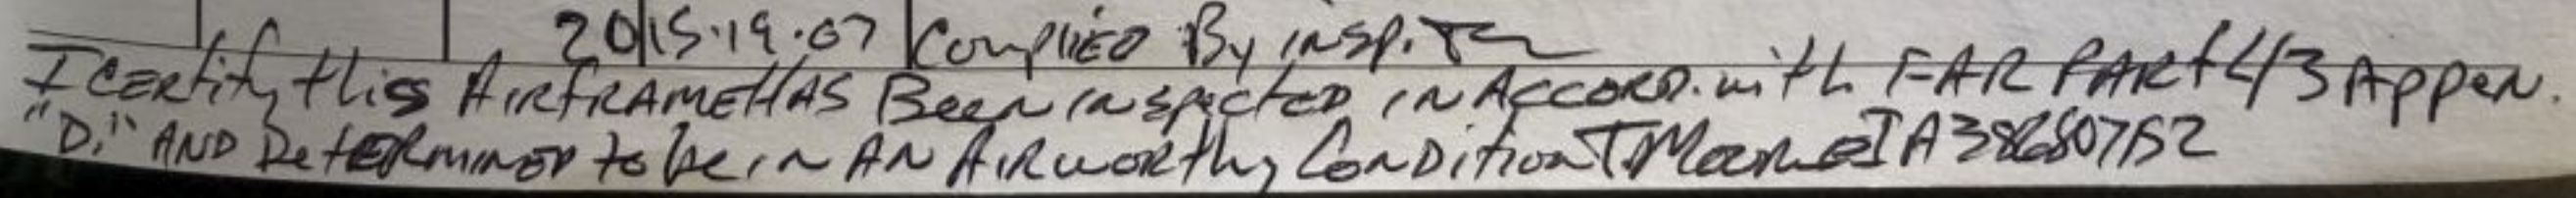 2015.19.07 Complied By insp.
I certify this AirframE HAS Been inspected in Accord. with FAR PARt 43 Appen.
"D." AND DetERMINED to be in AN AiRworthy CoNDitioN IA